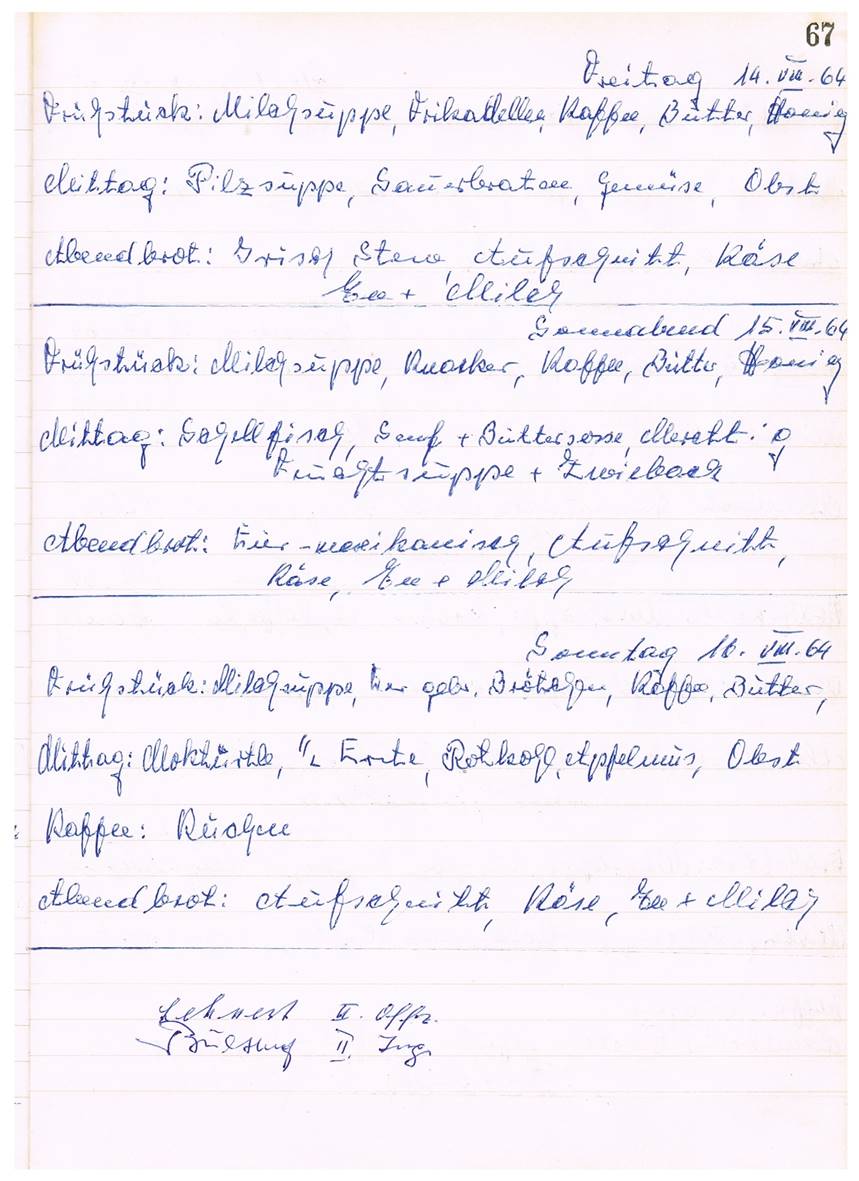 67
Freitag 14. VIII. 64
Frühstück: Milchsuppe, Frikadellen, Kaffee, Butter, Honig
Mittag: Pilzsuppe, Sauerbraten, Gemüse, Obst
Abendbrot: Irisch Stew, Aufschnitt, Käse
Tee + Milch
Sonnabend 15. VIII. 64
Frühstück: Milchsuppe, Knacker, Kaffee, Butter, Honig
Mittag: Schellfisch, Senf + Buttersosse, Meerettig
Fruchtsuppe + Zwieback
Abendbrot: Eier-mexikanisch, Aufschnitt,
Käse, Tee + Milch
Sonntag 16. VIII. 64
Frühstück: Milchsuppe, Eier gebr. Brötchen, Kaffee, Butter,
Mittag: Mokturtle, Ente, Rotkohl, Apfelmus, Obst
Kaffee: Kuchen
Abendbrot: Aufschnitt, Käse, Tee + Milch
Lehnert II. Offz.
II. Ing.